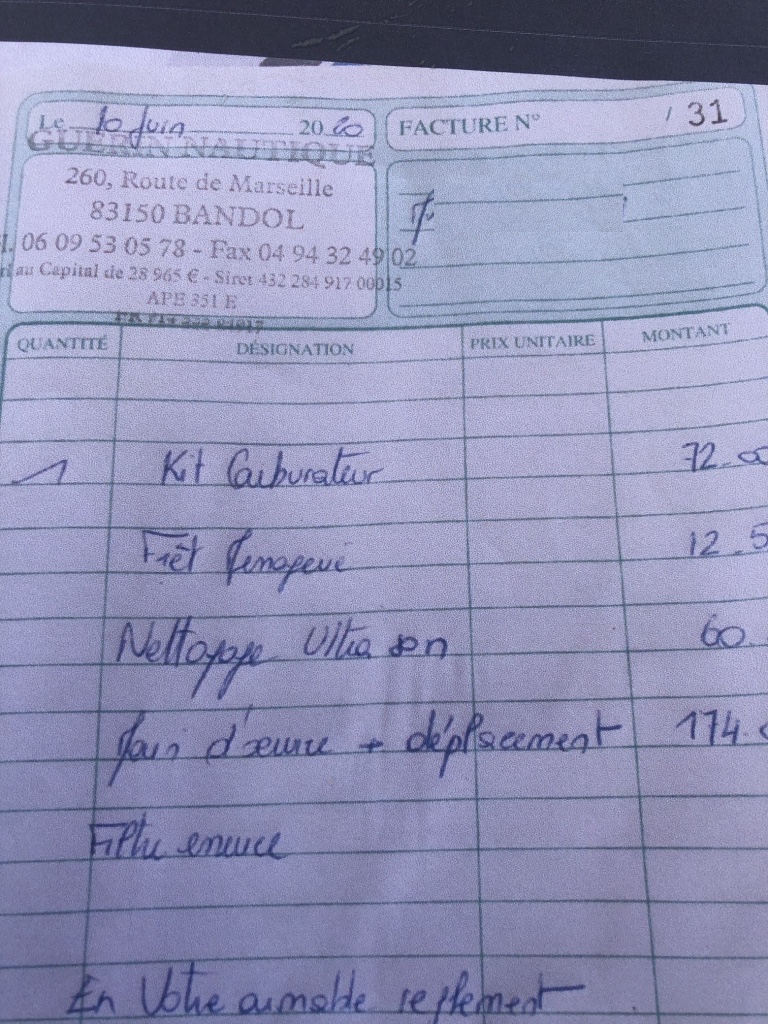 Le 10 Juin 2020
FACTURE N° / 31
GUERIN NAUTIQUE
260, Route de Marseille
83150 BANDOL
l. 06 09 53 05 78 - Fax 04 94 32 49 02
au Capital de 28 965 € - Siret 432 284 917 00015
APE 351 E
QUANTITÉ DÉSIGNATION PRIX UNITAIRE MONTANT
1 Kit Carburateur 72.00
Frêt 12.5
Nettoyage Ultra son 60.
Main d'œuvre + déplacement 174.
Filtre
En Votre aimable reglement